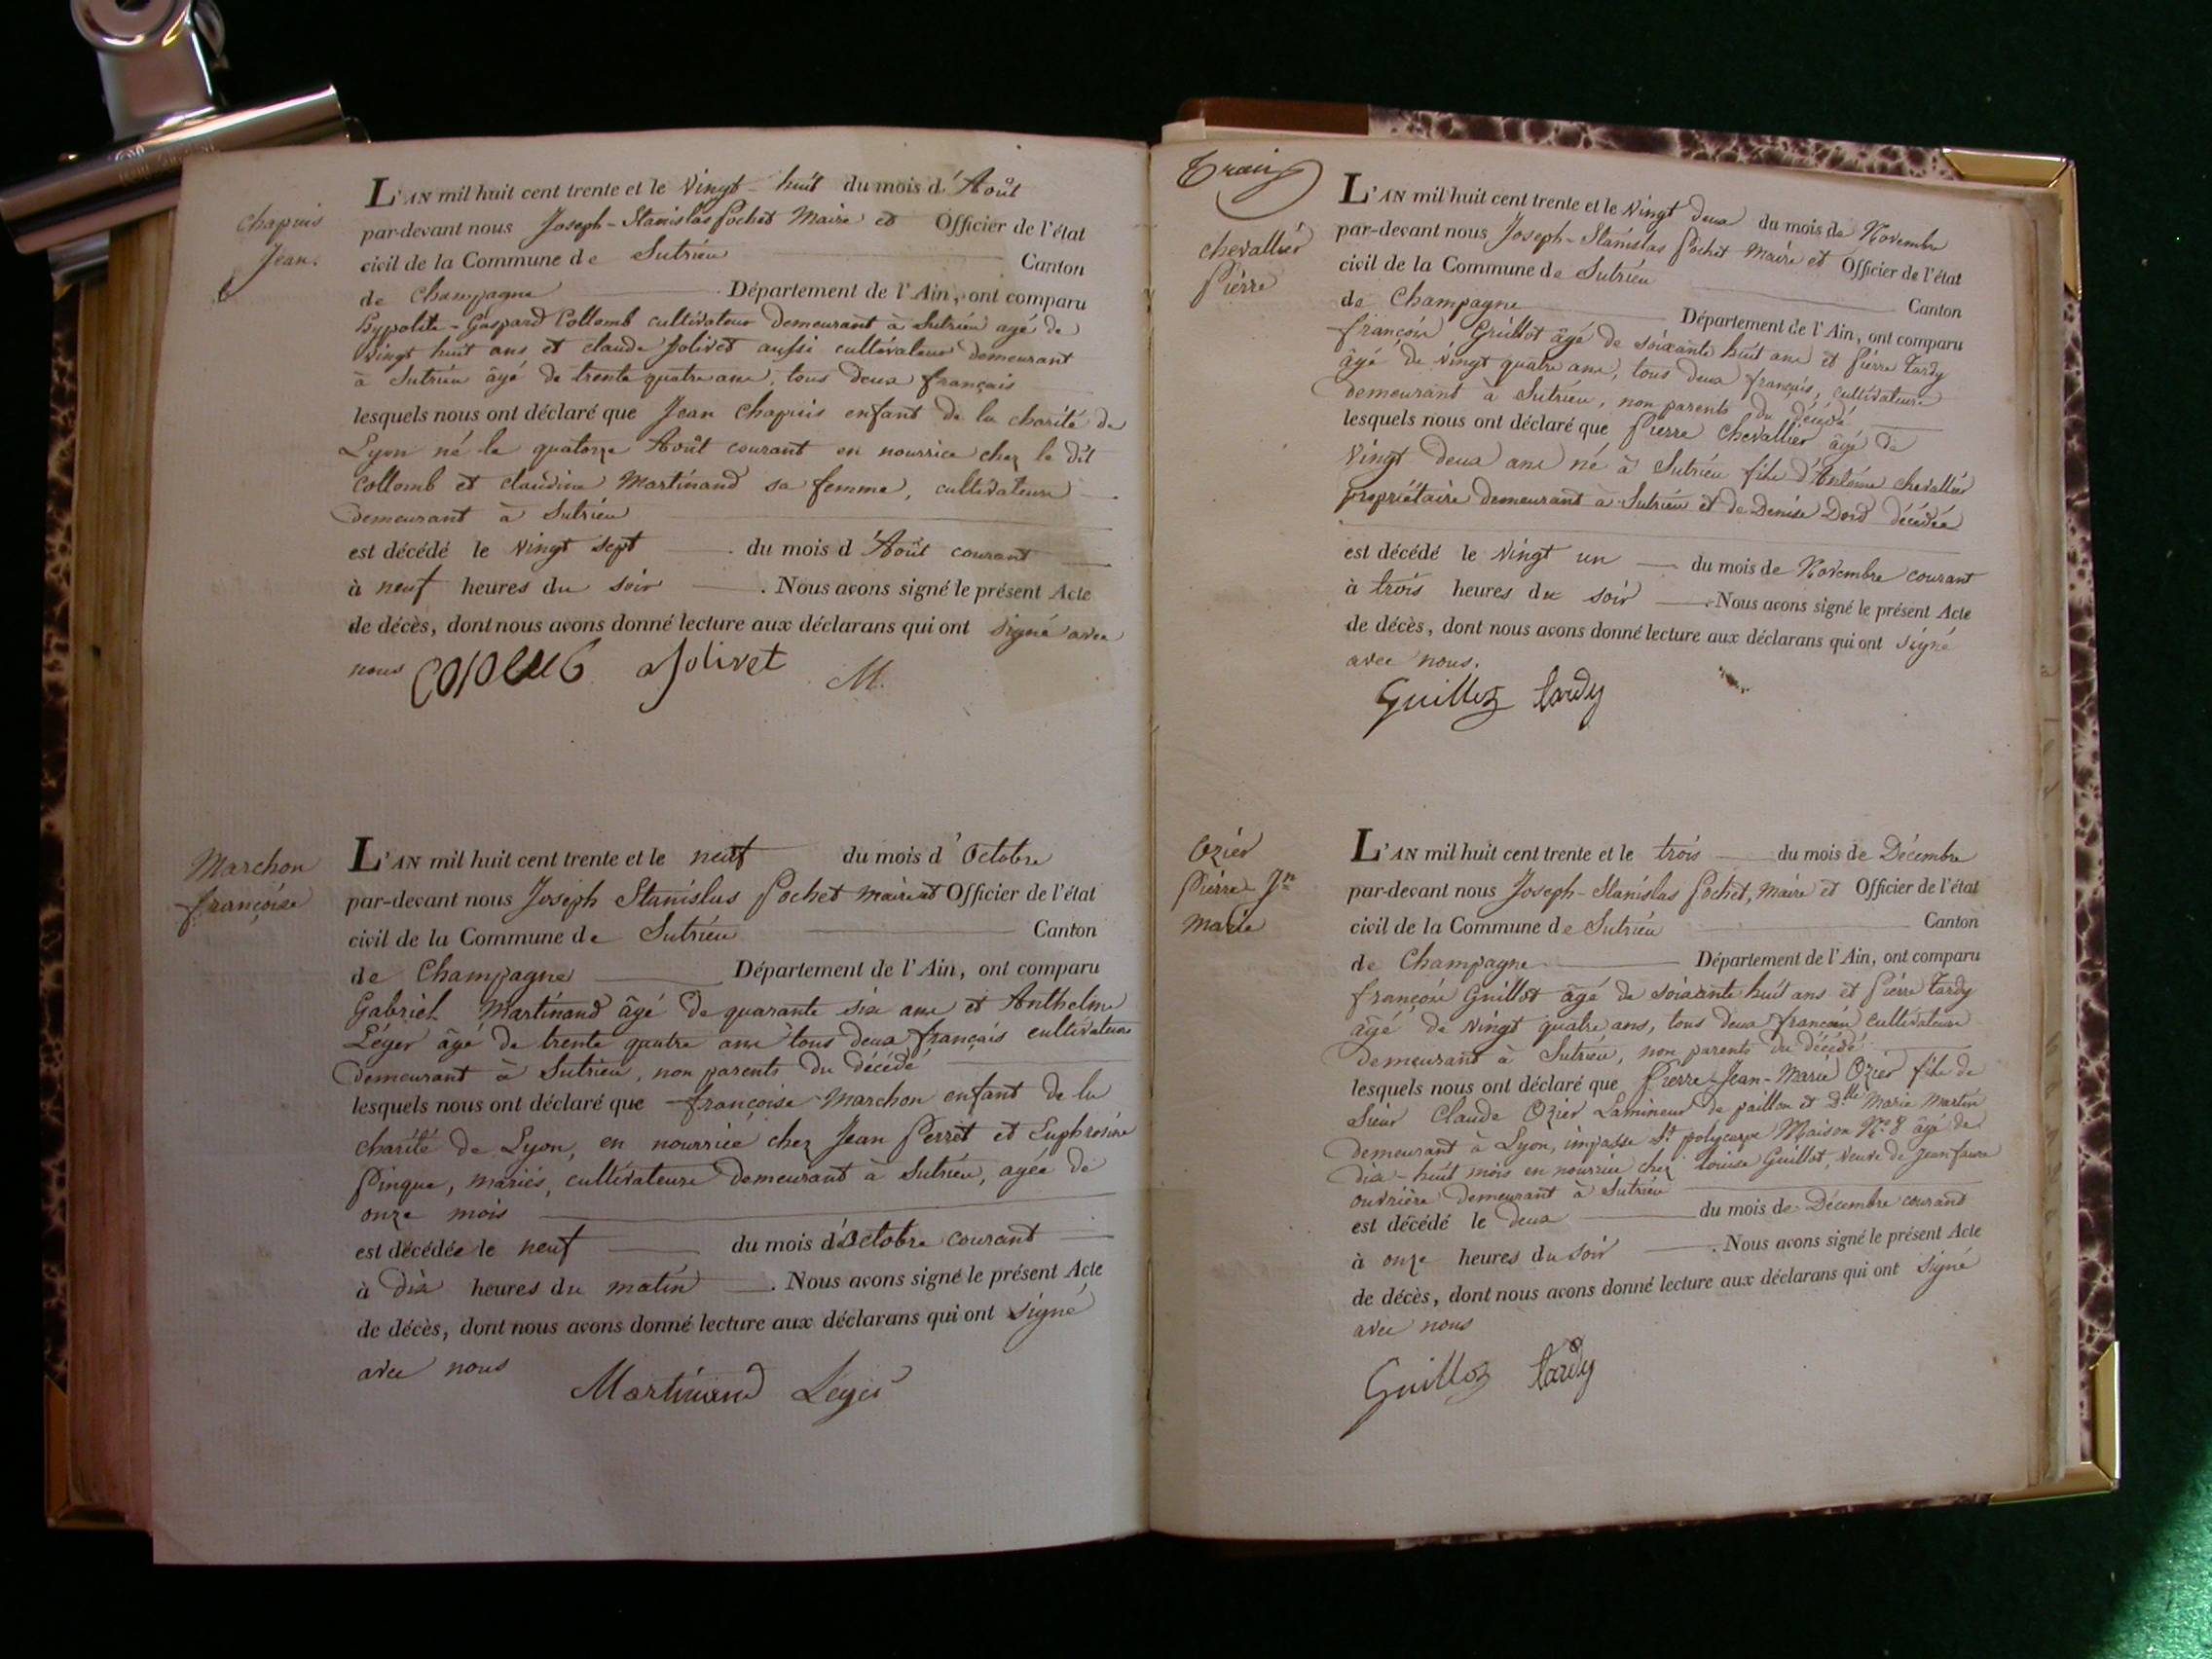 Chapuis
Jean.
L'AN mil huit cent trente et le vingt-huit du mois d'Août
par-devant nous Joseph-Stanislas Pochet Maire et Officier de l'état
civil de la Commune de Sutrieu Canton
de Champagne Département de l'Ain, ont comparu
hypolite-Gaspard Collomb cultivateur demeurant à Sutrieu agé de
vingt huit ans et claude Jolivet aussi cultivateur demeurant
à Sutrieu âgé de trente quatre ans, tous deux français
lesquels nous ont déclaré que Jean Chapuis enfant de la charité de
Lyon né le quatorze Août courant en nourrice chez le dit
Collomb et claudine Martinand sa femme, cultivateurs
demeurant à Sutrieu
est décédé le vingt sept du mois d'Août courant
à neuf heures du soir . Nous avons signé le présent Acte
de décès, dont nous avons donné lecture aux déclarans qui ont signé avec
nous Jolivet M.
Marchon
françoise
L'AN mil huit cent trente et le neuf du mois d'Octobre
par-devant nous Joseph Stanislas Pochet maire et Officier de l'état
civil de la Commune de Sutrieu Canton
de Champagne Département de l'Ain, ont comparu
Gabriel Martinand âgé de quarante six ans et Anthelme
Léger âgé de trente quatre ans tous deux français cultivateurs
demeurant à Sutrieu, non parents du décédé
lesquels nous ont déclaré que françoise Marchon enfant de la
charité de Lyon, en nourrice chez Jean Perret et Euphrosine
Pinque, mariés, cultivateurs demeurant à Sutrieu, agée de
onze mois
est décédée le neuf du mois d'Octobre courant
à dix heures du matin . Nous avons signé le présent Acte
de décès, dont nous avons donné lecture aux déclarans qui ont signé
avec nous
Martinand Leger
chevallier
Pierre
L'AN mil huit cent trente et le vingt deux du mois de Novembre
par-devant nous Joseph-Stanislas Pochet Maire et Officier de l'état
civil de la Commune de Sutrieu Canton
de Champagne Département de l'Ain, ont comparu
françois Guillot âgé de soixante huit ans et Pierre Tardy
âgé de vingt quatre ans, tous deux français, cultivateurs
demeurant à Sutrieu, non parents du décédé
lesquels nous ont déclaré que Pierre Chevallier âgé de
vingt deux ans né à Sutrieu fils d'Antoine chevallier
propriétaire demeurant à Sutrieu et de Denise Dord décédée
est décédé le vingt un du mois de Novembre courant
à trois heures du soir . Nous avons signé le présent Acte
de décès, dont nous avons donné lecture aux déclarans qui ont signé
avec nous.
Guillot tardy
Ozier
Pierre Jn
marie
L'AN mil huit cent trente et le trois du mois de Décembre
par-devant nous Joseph-Stanislas Pochet, Maire et Officier de l'état
civil de la Commune de Sutrieu Canton
de Champagne Département de l'Ain, ont comparu
françois Guillot âgé de soixante huit ans et Pierre Tardy
âgé de vingt quatre ans, tous deux français cultivateurs
demeurant à Sutrieu, non parents du décédé
lesquels nous ont déclaré que Pierre-Jean-Marie Ozier fils de
Sieur Claude Ozier Lamineur de paillon et Dlle Marie Martin
demeurant à Lyon, impasse St polycarpe Maison No 8 âgé de
dix-huit mois en nourrice chez Louise Guillot, veuve de Jean faure
ouvrière demeurant à Sutrieu
est décédé le deux du mois de Décembre courant
à onze heures du soir . Nous avons signé le présent Acte
de décès, dont nous avons donné lecture aux déclarans qui ont signé
avec nous
Guillot tardy